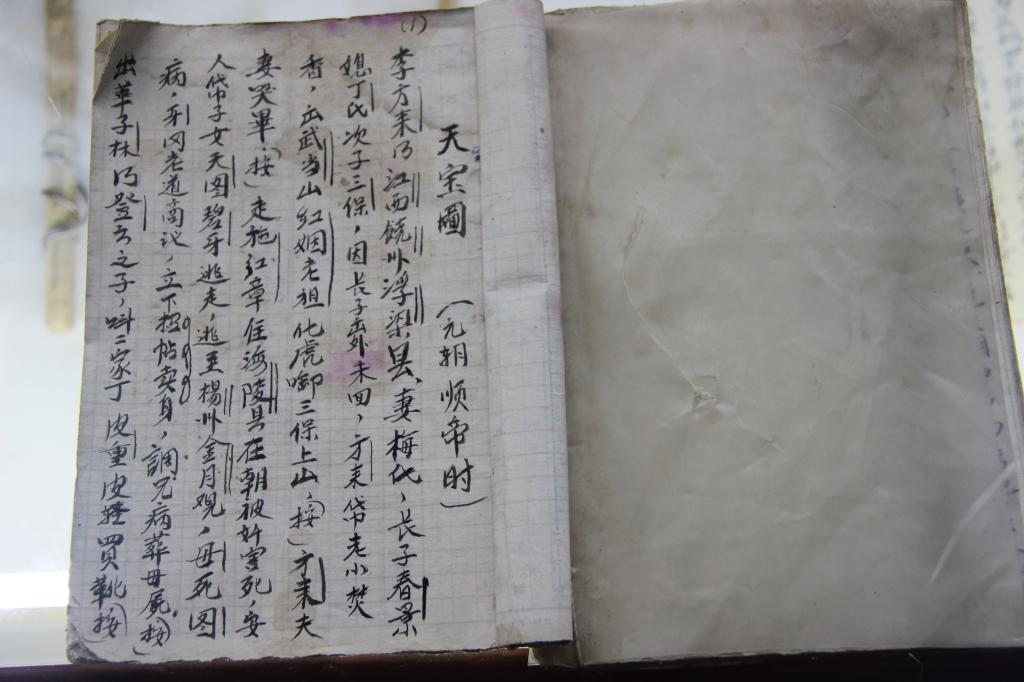 (1)
天宝圖 (元朝顺帝时)
李方来乃江西饶州浮梁县、妻梅氏、长子春景
媳丁氏次子三保，因长子出外未回，方来带老小焚
香，出武当山红姻老祖化虎啣三保上山，(按)方来夫
妻哭畢(按)走施红章住海陵县在朝被奸害死，安
人带子女天图碧牙逃走，逃至楊州金月观，母死图
病，牙冈老道商议，立下招帖卖身，調兄病葬母屍(按)
出華子林乃登云之子，叫二家丁皮重皮輕買靴(按)